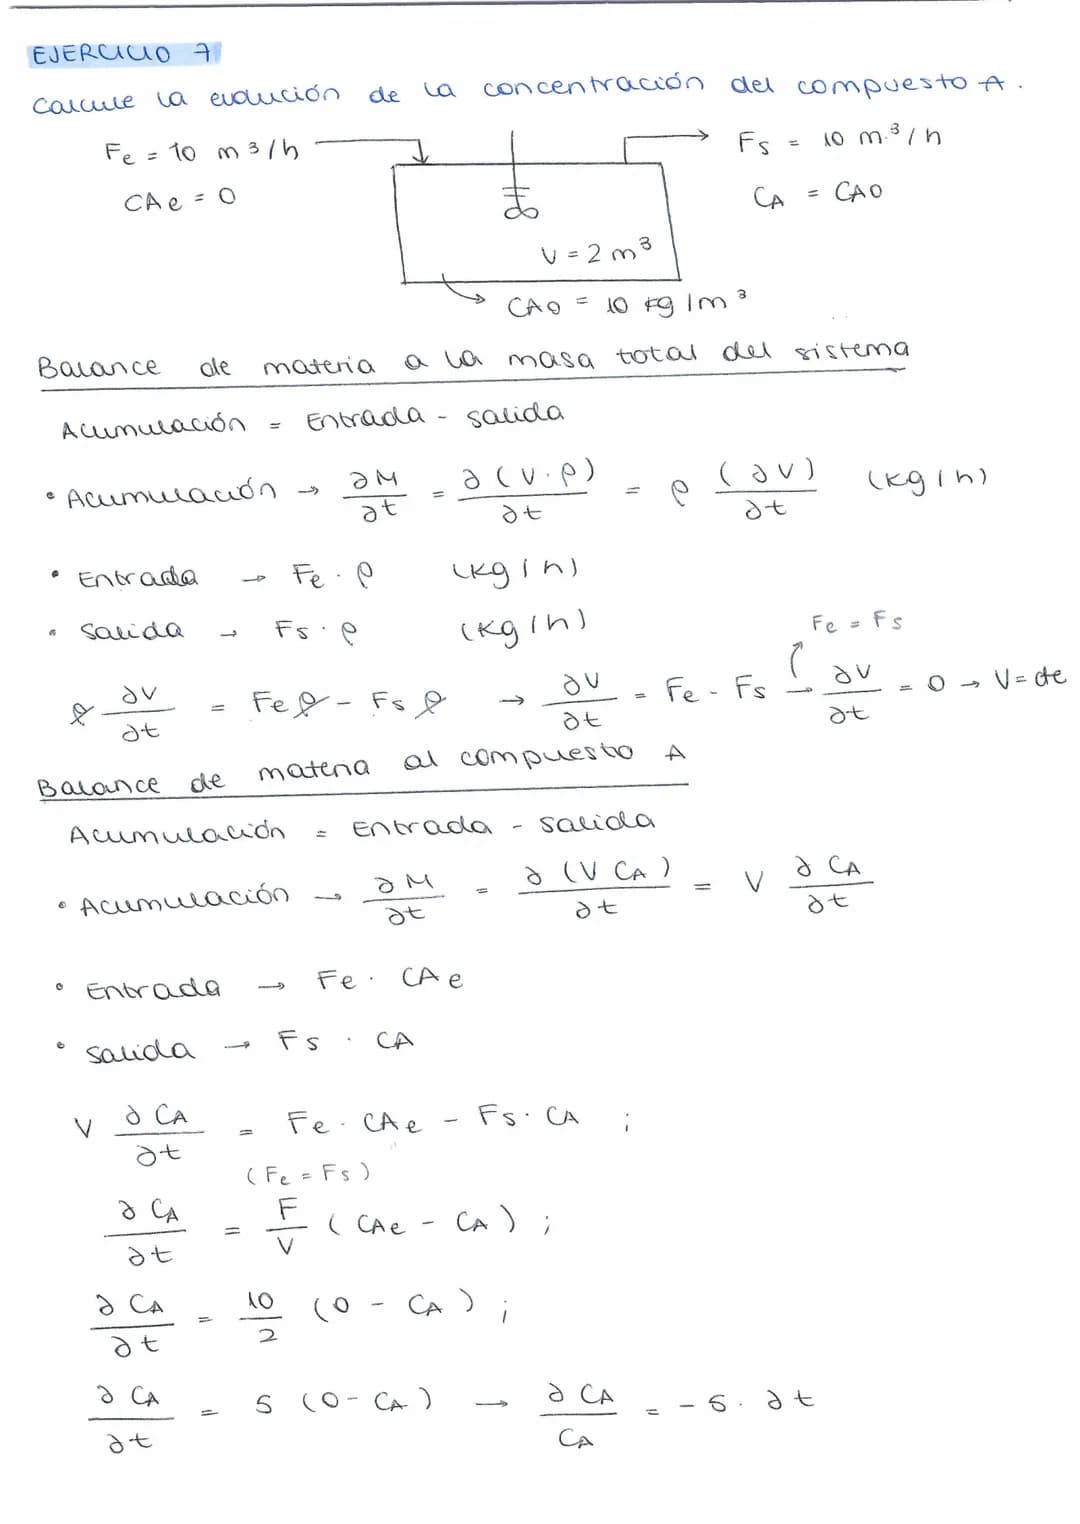 EJERCICIO 7
Calcule la evolución de la concentración del compuesto A.
Fe = 10 m3/h
Fs = 10 m.3/h
CAe = 0
CA = CAO
V = 2 m3
CAO = 10 kg/m3
Balance de materia a la masa total del sistema
Acumulación = Entrada - salida
• Acumulación → ∂M/∂t = ∂(V·ρ)/∂t = ρ (∂V)/∂t (kg/h)
• Entrada → Fe·ρ (kg/h)
• Salida → Fs·ρ (kg/h)
Fe = Fs
ρ ∂V/∂t = Feρ - Fsρ → ∂V/∂t = Fe - Fs → ∂V/∂t = 0 → V = cte
Balance de materia al compuesto A
Acumulación = Entrada - salida
• Acumulación → ∂M/∂t = ∂(V CA)/∂t = V ∂CA/∂t
• Entrada → Fe · CAe
• salida → Fs · CA
V ∂CA/∂t = Fe · CAe - Fs · CA ;
(Fe = Fs)
∂CA/∂t = F/V (CAe - CA) ;
∂CA/∂t = 10/2 (0 - CA) ;
∂CA/∂t = 5 (0 - CA) → ∂CA/CA = -5 · ∂t